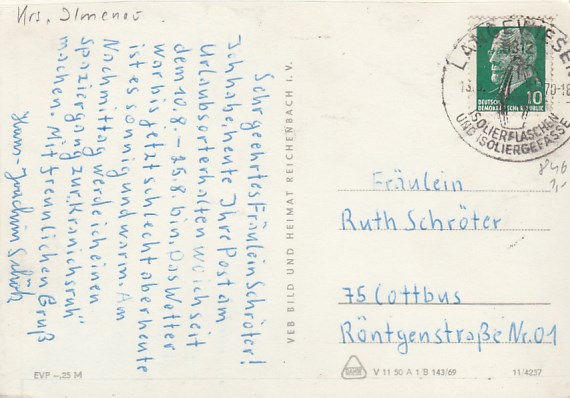 Krs. Ilmenau
Sehr geehrtes Fräulein Schröter!
Ich habe heute Ihre Post am
Urlaubsort erhalten wo ich seit
dem 10.8. – 25.8. bin. Das Wetter
war bis jetzt schlecht aber heute
ist es sonnig und warm. Am
Nachmittag werde ich einen
Spaziergang zur "Kranichsruh"
machen. Mit freunlichen Gruß
Hans-Joachim
VEB BILD UND HEIMAT REICHENBACH I. V.
LANGEWIESEN
6312
70-18
ISOLIERFLASCHEN
UND ISOLIERGEFÄSSE
DEUTSCHE
DEMOKRATISCHE REPUBLIK
10
846
1,-
Fräulein
Ruth Schröter
75 Cottbus
Röntgenstraße Nr. 01
EVP –,25 M
V 11 50 A 1 B 143/69
11/4237